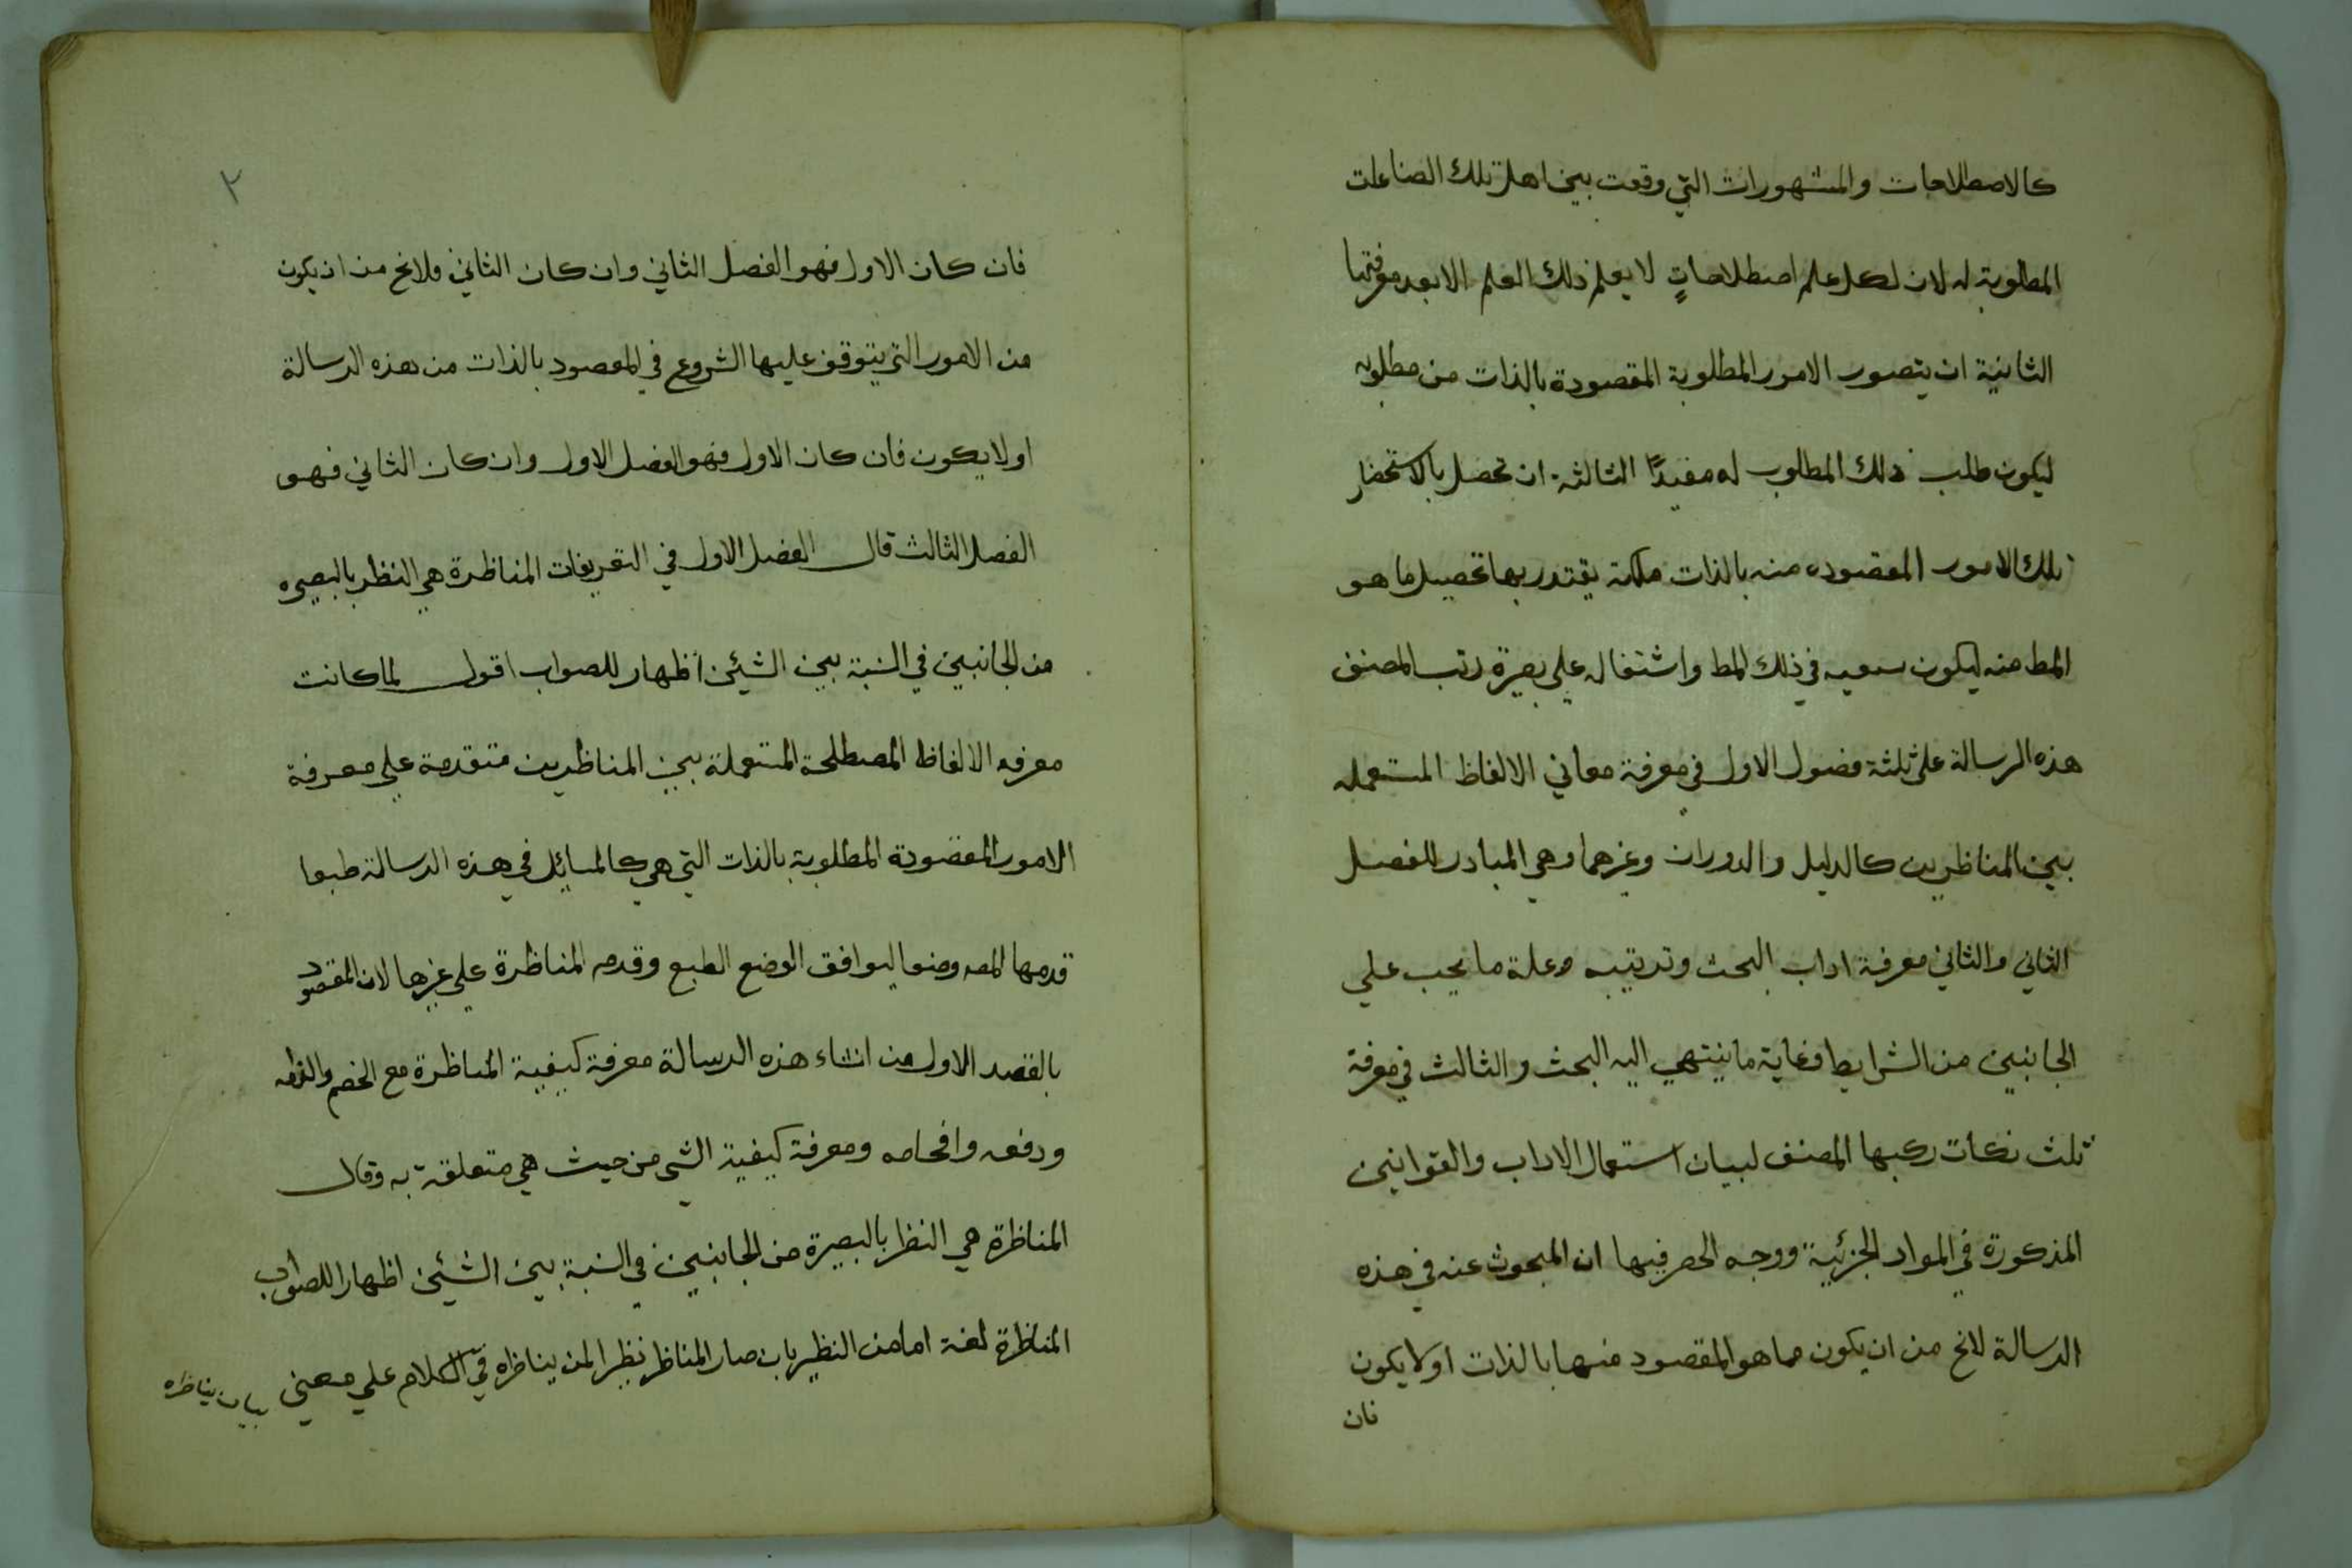 كالاصطلاحات والمشهورات التي وقعت بين اهل تلك الصناعات
المطلوبة له لان لكل علم اصطلاحاتٍ لا يعلم ذلك العلم الا بعد معرفتها
الثانية ان يتصور الامور المطلوبة المقصودة بالذات من مطلوبه
ليكون طلب ذلك المطلوب له مفيدًا الثالثة ان تحصل بالاستحضار
تلك الامور المقصوده منه بالذات ملكة يقتدر بها تحصيل ما هو
المط منه ليكون سعيه في ذلك المط واشتغاله علي بصيرة رتب المصنف
هذه الرسالة على ثلثة فصول الاول في معرفة معاني الالفاظ المستعمله
بين المناظرين كالدليل والدوران وغيرهما وهي المبادر للفصل
الثاني والثاني معرفة اداب البحث وترتيبه وعلة ما يجب علي
الجانبين من الشرايط وغاية ما ينتهي اليه البحث والثالث في معرفة
ثلث نكات ركبها المصنف لبيان استعمال الاداب والقوانين
المذكورة في المواد الجزئية ووجه الحصر فيها ان المبحوث عنه في هذه
الرسالة لايخ من ان يكون مما هو المقصود منها بالذات او لا يكون
فان
٢
فان كان الاول فهو الفصل الثاني وان كان الثاني فلايخ من ان يكون
من الامور التي يتوقف عليها الشروع في المقصود بالذات من هذه الرسالة
او لا يكون فان كان الاول فهو الفصل الاول وان كان الثاني فهو
الفصل الثالث قال الفصل الاول في التعريفات المناظرة هي النظر بالبصيره
من الجانبين في النسبة بين الشيئين اظهار للصواب اقول لما كانت
معرفه الالفاظ المصطلحة المستعملة بين المناظرين متقدمة علي معرفة
الامور المقصودة المطلوبة بالذات التي هي كالمسايل في هذه الرسالة طبعا
قدمها المصه وضعا ليوافق الوضع الطبع وقدم المناظرة علي غيرها لان المقصود
بالقصد الاول من انشاء هذه الرسالة معرفة كيفية المناظرة مع الخصم والزامه
ودفعه وافحامه ومعرفة كيفية الشي من حيث هي متعلقة به وقال
المناظرة هي النظر بالبصيرة من الجانبين في النسبة بين الشيئين اظهارا للصواب
المناظرة لغة اما من النظير بان صار المناظر نظيرا لمن يناظره في الكلام علي معني
بيان يناظره